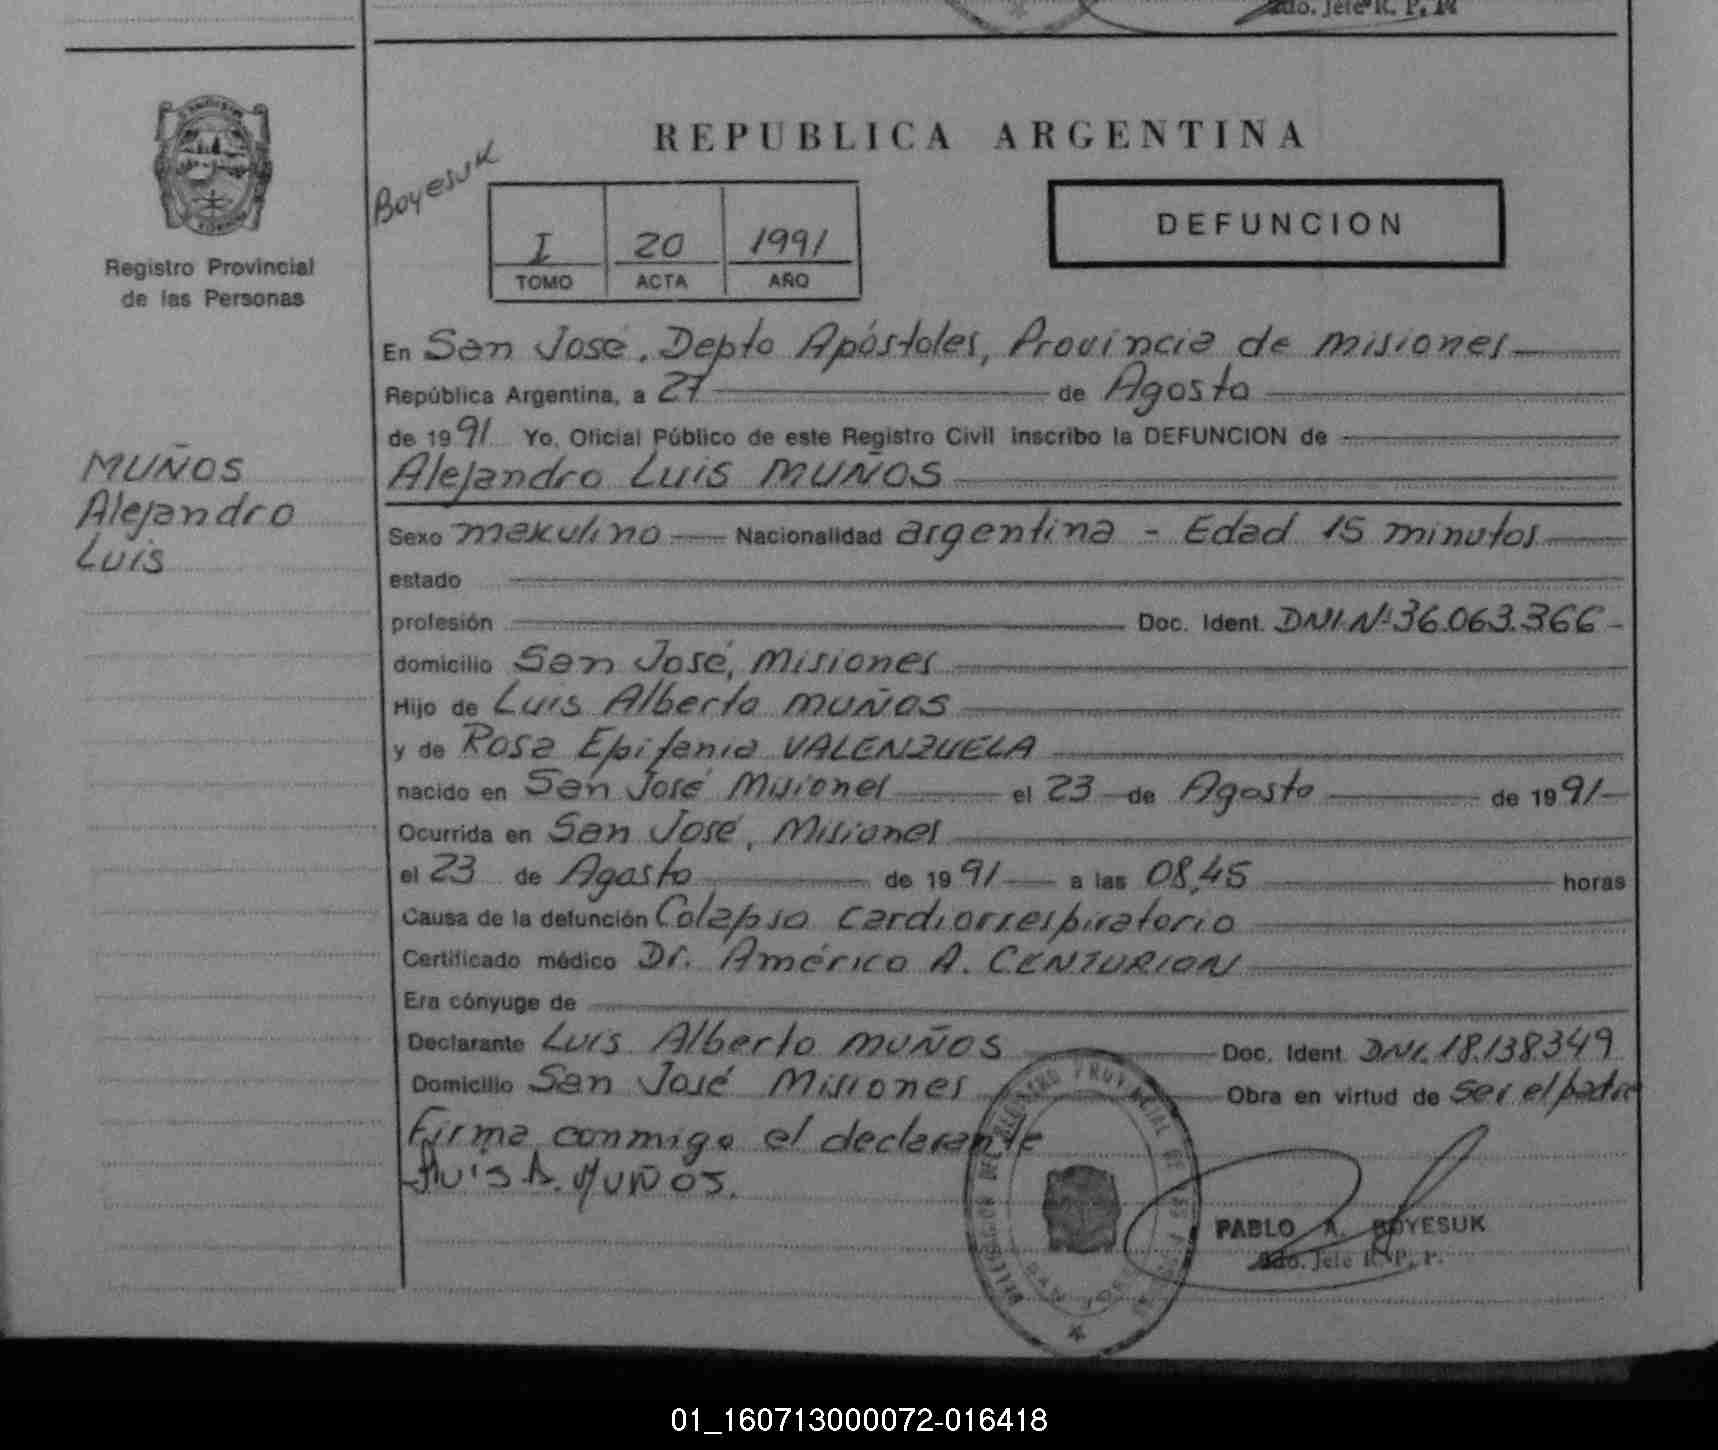 Sdo. Jefe R. P. P.
REPUBLICA ARGENTINA
Boyesuk
I 20 1991
TOMO ACTA AÑO
DEFUNCION
Registro Provincial
de las Personas
MUÑOS
Alejandro
Luis
En San José, Depto Apóstoles, Provincia de Misiones
República Argentina, a 27 de Agosto
de 1991 Yo, Oficial Público de este Registro Civil inscribo la DEFUNCION de
Alejandro Luis MUÑOS
Sexo maxulino Nacionalidad argentina - Edad 15 minutos
estado
profesión Doc. Ident. DNI.Nº 36.063.366
domicilio San José, Misiones
Hijo de Luis Alberto MUÑOS
y de Rosa Epifania VALENZUELA
nacido en San José Misiones el 23 de Agosto de 1991
Ocurrida en San José, Misiones
el 23 de Agosto de 1991 a las 08,45 horas
Causa de la defunción Colapso cardiorrespiratorio
Certificado médico Dr. Américo A. CENTURION
Era cónyuge de
Declarante Luis Alberto MUÑOS Doc. Ident. DNI. 18.138349
Domicilio San José Misiones Obra en virtud de ser el padre
Firma conmigo el declarante
Luis A. MUÑOS.
PABLO A. BOYESUK
Sdo. Jefe R. P. P.
01_160713000072-016418